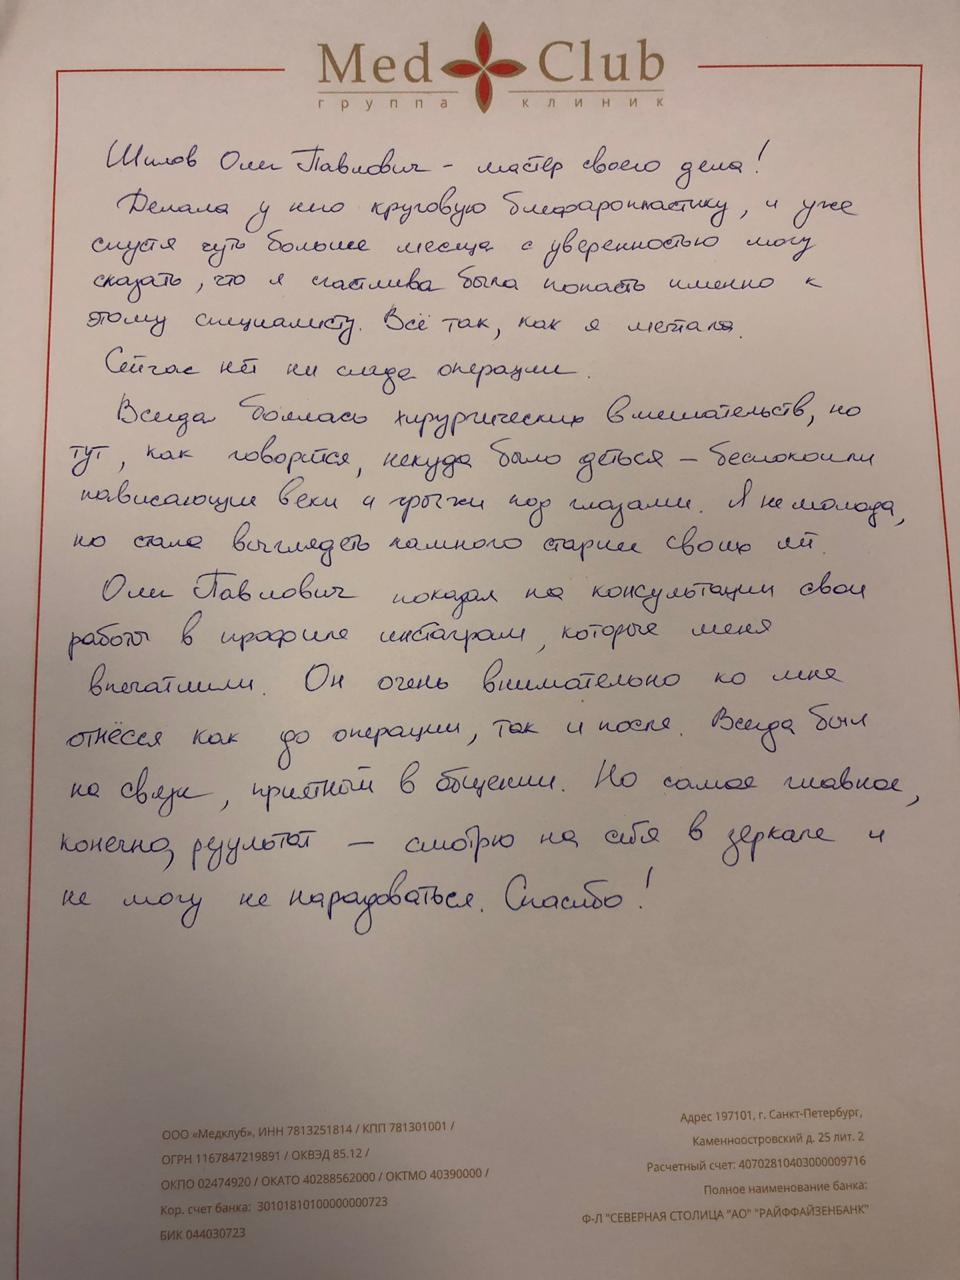 Med Club
группа клиник
Шилов Олег Павлович - мастер своего дела!
Делала у него круговую блефаропластику, и уже
спустя чуть больше месяца с уверенностью могу
сказать, что я счастлива была попасть именно к
этому специалисту. Всё так, как я мечтала.
Сейчас нет ни следа операции.
Всегда боялась хирургических вмешательств, но
тут, как говорится, некуда было деться – беспокоили
нависающие веки и грыжи под глазами. Я не молода,
но стала выглядеть намного старше своих лет.
Олег Павлович показал на консультации свои
работы в профиле инстаграм, которые меня
впечатлили. Он очень внимательно ко мне
отнёсся как до операции, так и после. Всегда был
на связи, приятный в общении. Но самое главное,
конечно, результат — смотрю на себя в зеркале и
не могу не нарадоваться. Спасибо!
ООО «Медклуб», ИНН 7813251814 / КПП 781301001 /
ОГРН 1167847219891 / ОКВЭД 85.12 /
ОКПО 02474920 / ОКАТО 40288562000 / ОКТМО 40390000 /
Кор. счет банка: 30101810100000000723
БИК 044030723
Адрес 197101, г. Санкт-Петербург,
Каменноостровский д. 25 лит. 2
Расчетный счет: 40702810403000009716
Полное наименование банка:
Ф-Л "СЕВЕРНАЯ СТОЛИЦА "АО" "РАЙФФАЙЗЕНБАНК"